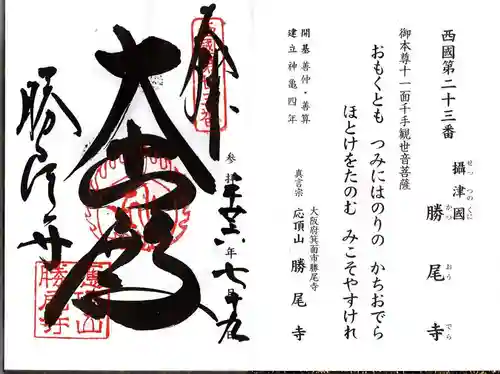 西國第二十三番
攝津國 勝尾寺
せつ つの くに かつ おう でら
御本尊十一面千手観世音菩薩
おもくとも つみにはのりの かちおでら
ほとけをたのむ みこそやすけれ
開基 善仲・善算
建立 神亀四年
大阪府箕面市勝尾寺
真言宗 応頂山 勝尾寺
奉
参拝 平廿六年七月九
勝尾寺